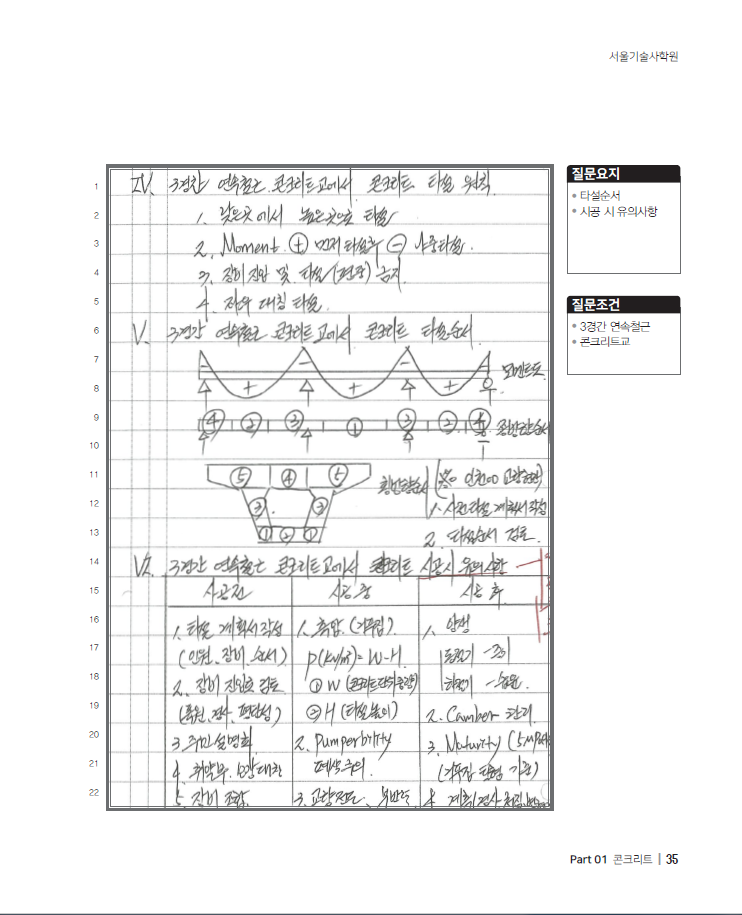 서울기술사학원
질문요지
• 타설순서
• 시공 시 유의사항
질문조건
• 3경간 연속철근
• 콘크리트교
1 IV. 3경간 연속철근 콘크리트교에서 콘크리트 타설 원칙
2 1. 낮은곳에서 높은곳으로 타설
3 2. Moment ⊕ 먼저 타설후 ⊖ 나중타설.
4 3. 장비 진입 및 타설(편중) 금지
5 4. 좌우 대칭 타설.
6 V. 3경간 연속철근 콘크리트교에서 콘크리트 타설순서
7 - - - -
모멘트도
8 + + +
9 ④ ② ③ ① ③ ② ④ 종방향순서
10
11 ⑤ ④ ⑤ 횡방향순서
12 ③ ③ 1. 사전타설 계획서 작성
13 ① ② ① 2. 타설순서 검토.
14 VI. 3경간 연속철근 콘크리트교에서 콘크리트 시공시 유의사항
15 시공전 시공중 시공후
16 1. 타설 계획서 작성 1. 측압 (거푸집) 1. 양생
17 (인원, 장비, 순서) P(kN/m²) = W·H
18 2. 장비 진입로 검토 ① W (콘크리트 단위중량)
19 ② H (타설높이) 2. Camber 관리
20 3. 주민설명회 2. Pumperbility 3. Maturity (5MPa
21 폐색주의. (거푸집 탈형 기준)
22 5. 장비 조합. 3. 교량전도, 부반력 4.
Part 01 콘크리트 | 35